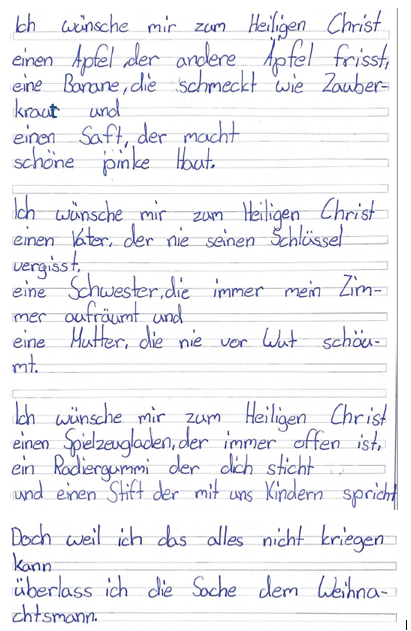 Ich wünsche mir zum Heiligen Christ
einen Apfel, der andere Äpfel frisst,
eine Banane, die schmeckt wie Zauber-
kraut und
einen Saft, der macht
schöne pinke Haut.
Ich wünsche mir zum Heiligen Christ
einen Vater, der nie seinen Schlüssel
vergisst,
eine Schwester, die immer mein Zim-
mer aufräumt und
eine Mutter, die nie vor Wut schäu-
mt.
Ich wünsche mir zum Heiligen Christ
einen Spielzeugladen, der immer offen ist,
ein Radiergummi der dich sticht
und einen Stift der mit uns Kindern spricht
Doch weil ich das alles nicht kriegen
kann
überlass ich die Sache dem Weihna-
chtsmann.